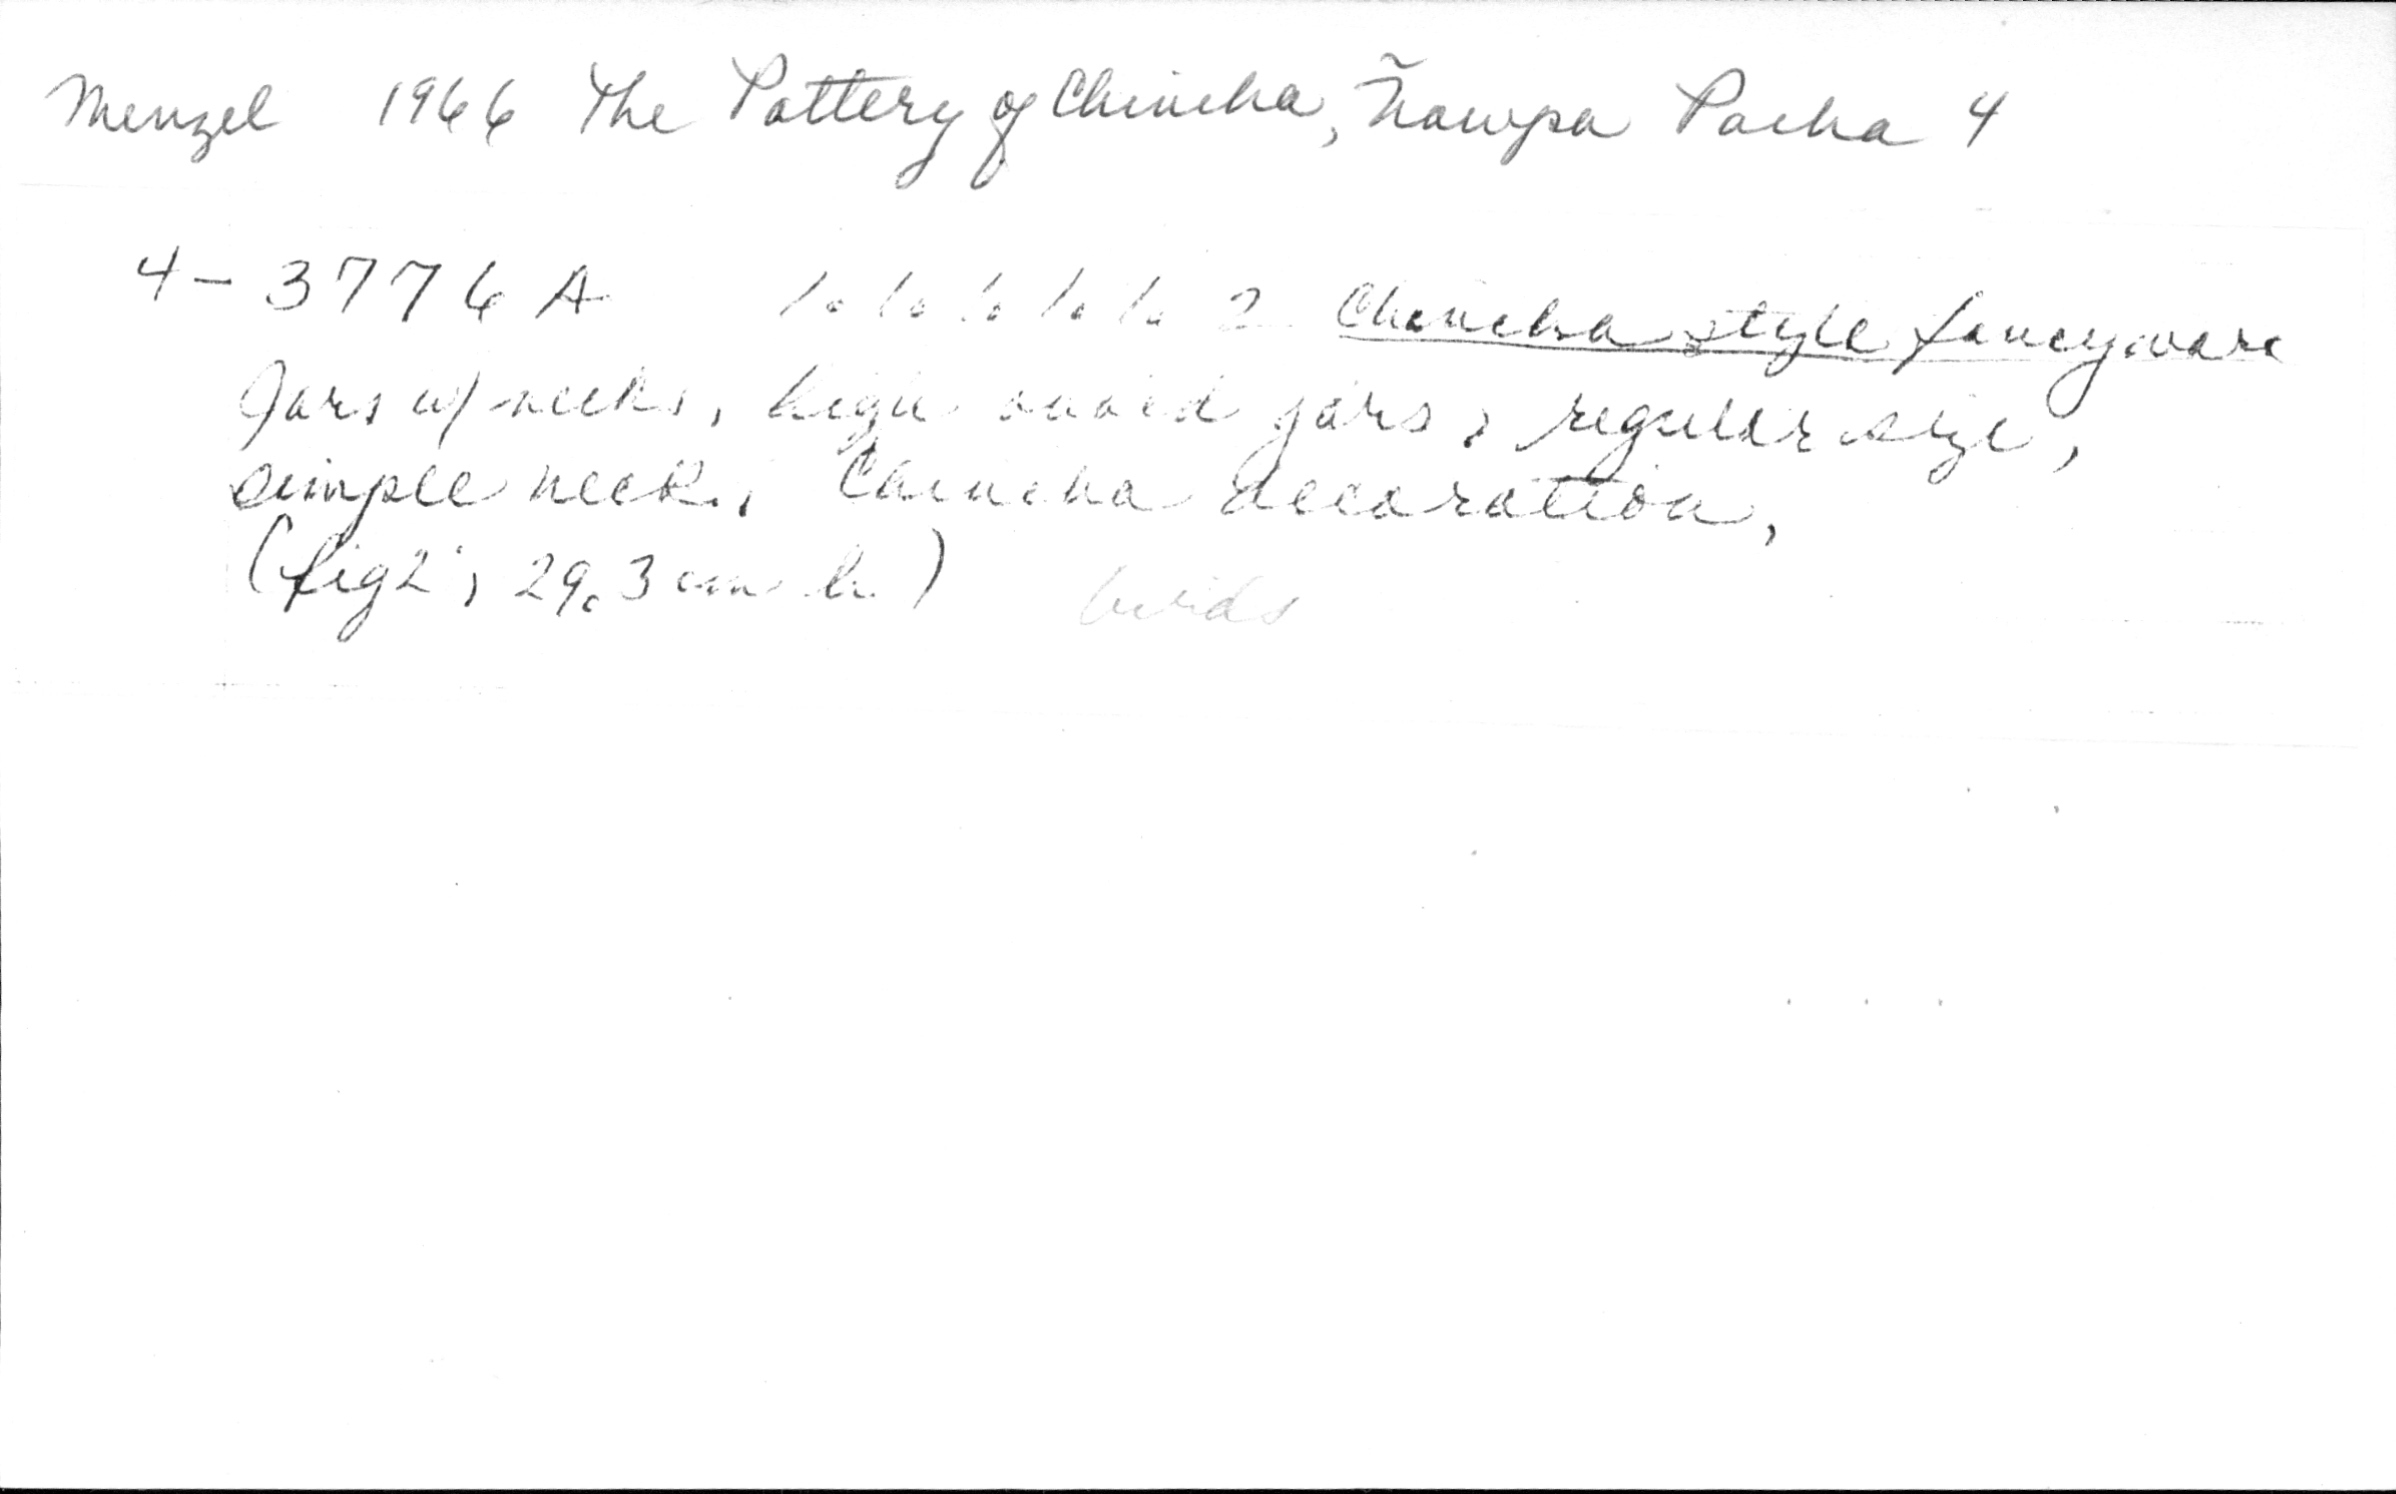 Menzel 1966 The Pottery of Chincha, Ñawpa Pacha 4
4-3776A 1.1.1.1.1.2 Chincha style fancyware
Jars w/ necks, high ovoid jars, regular size,
simple neck, Chincha decoration,
(fig 2, 29.3 cm h.) birds